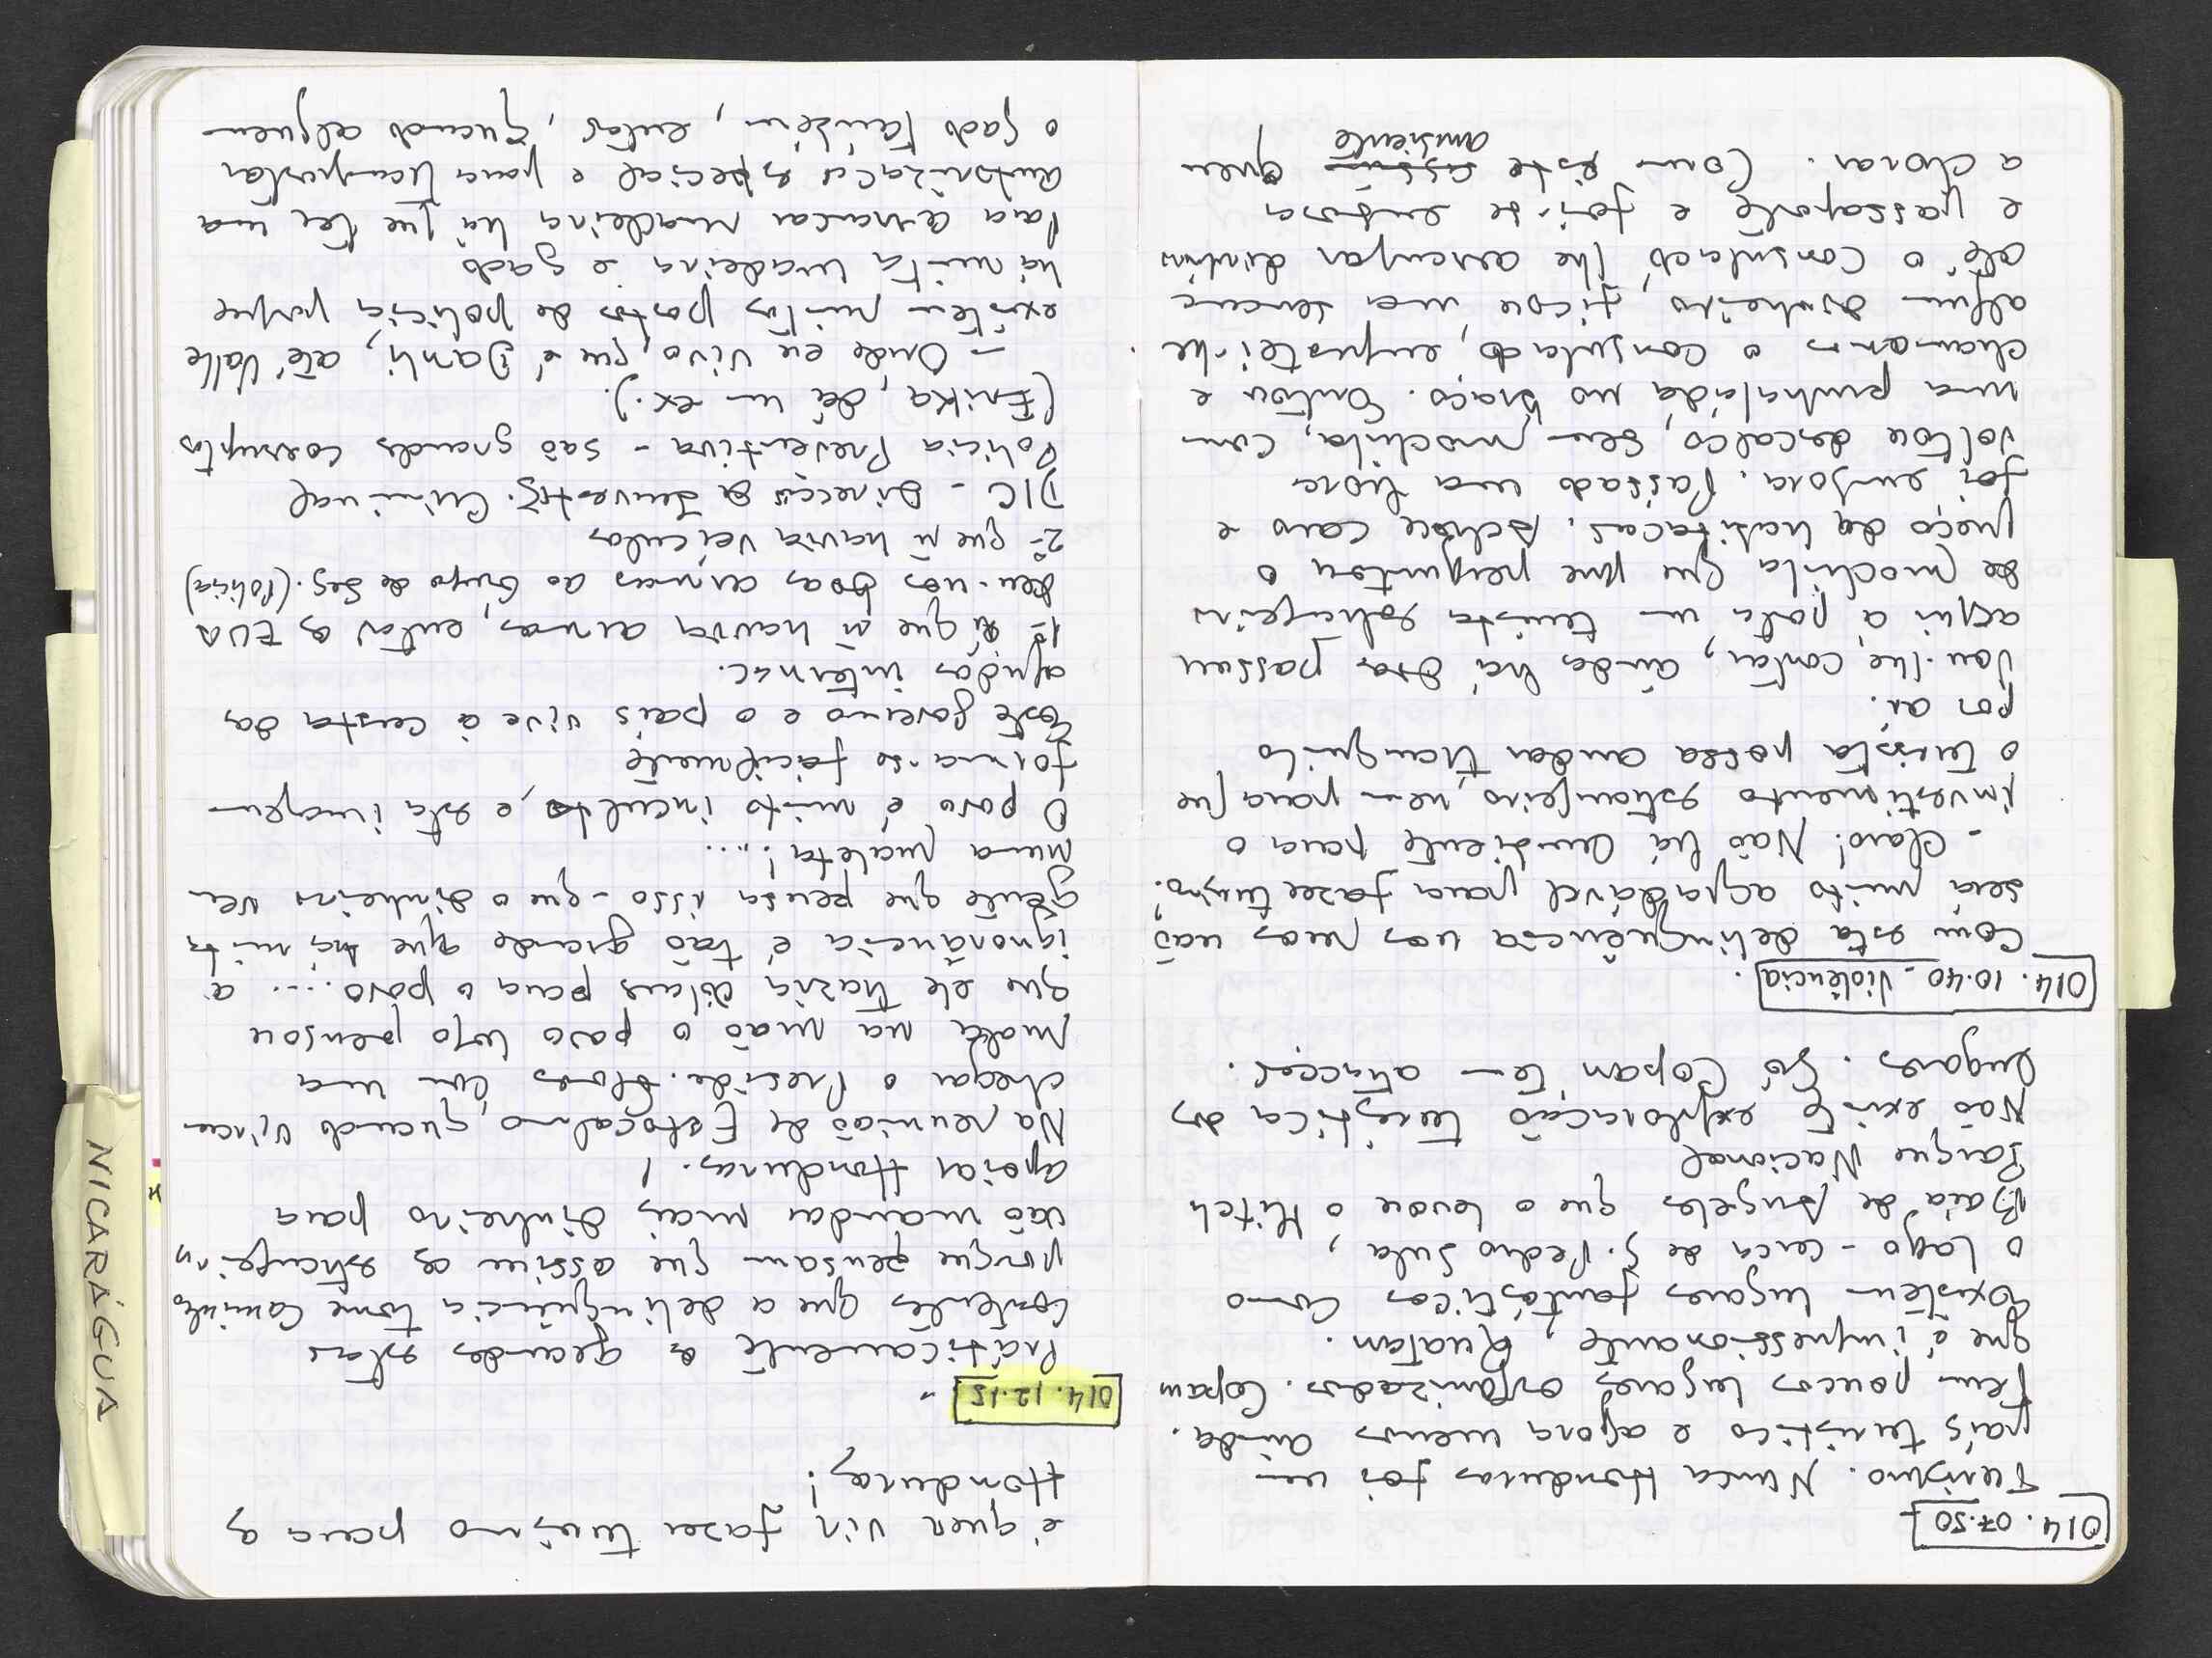 014. 07.50
Turismo. Nunca Honduras foi um
país turístico e agora menos ainda.
Tem poucos lugares organizados. Copan
que é impressionante, Ruatan.
Existem lugares fantásticos como
o Lago - cerca de S. Pedro Sula,
Baía de Angeles que o levou o Mitch
Parque Nacional
Não existe exploração turística dos
lugares. Só Copan tem atracções.
014. 10.40 - Violência.
Com esta delinquência nas ruas não
será muito agradável para fazer turismo.
- Claro! Não há ambiente para o
investimento estrangeiro, nem para que
o turista possa andar tranquilo
por aí.
Vou-lhe contar, ainda há dias passou
aqui à porta um turista estrangeiro
de mochila que me perguntou o
preço da habitação. Achou caro e
foi embora. Passado uma hora
voltou descalço, sem mochila, com
uma punhalada no braço. Entrou e
chamamos o consulado, emprestei-lhe
algum dinheiro, ficou uma semana
até o consulado lhe arranjar dinheiro
e passaporte e foi-se embora
a chorar. Com este ambiente quem
é quer vir fazer turismo para as
Honduras!
014. 12.15 -
Práticamente os grandes estão
contentes que a delinquência tome caminho
porque pensam que assim os estrangeiros
vão mandar mais dinheiro para
apoiar Honduras.!
Na reunião de Estocolmo, quando viram
chegar o Preside. Flores com uma
mala na mão o povo logo pensou
que ele trazia dólares para o povo.... a
ignorância é tão grande que há muita
gente que pensa isso - que o dinheiro vem
numa maleta!....
O povo é muito inculto, e esta imagem
forma-se facilmente
Este governo e o país vive à custa da
ajudas internac.
1º - é que ñ havia armas, então os EUA
deu-nos boas armas ao Corpo de Seg. (Polícia)
2º - que ñ havia veículos
DIC - Direcção de Investig. Criminal
Policia Preventiva - são grandes corruptos
(Erika, dá um ex.).
- Onde eu vivo, que é Danli, até Valle
existem muitos postos de polícia porque
há muita madeira e gado
Para arrancar madeira há que ter uma
autorização especial e para transportar
o gado também, então, quando alguem
NICARÁGUA